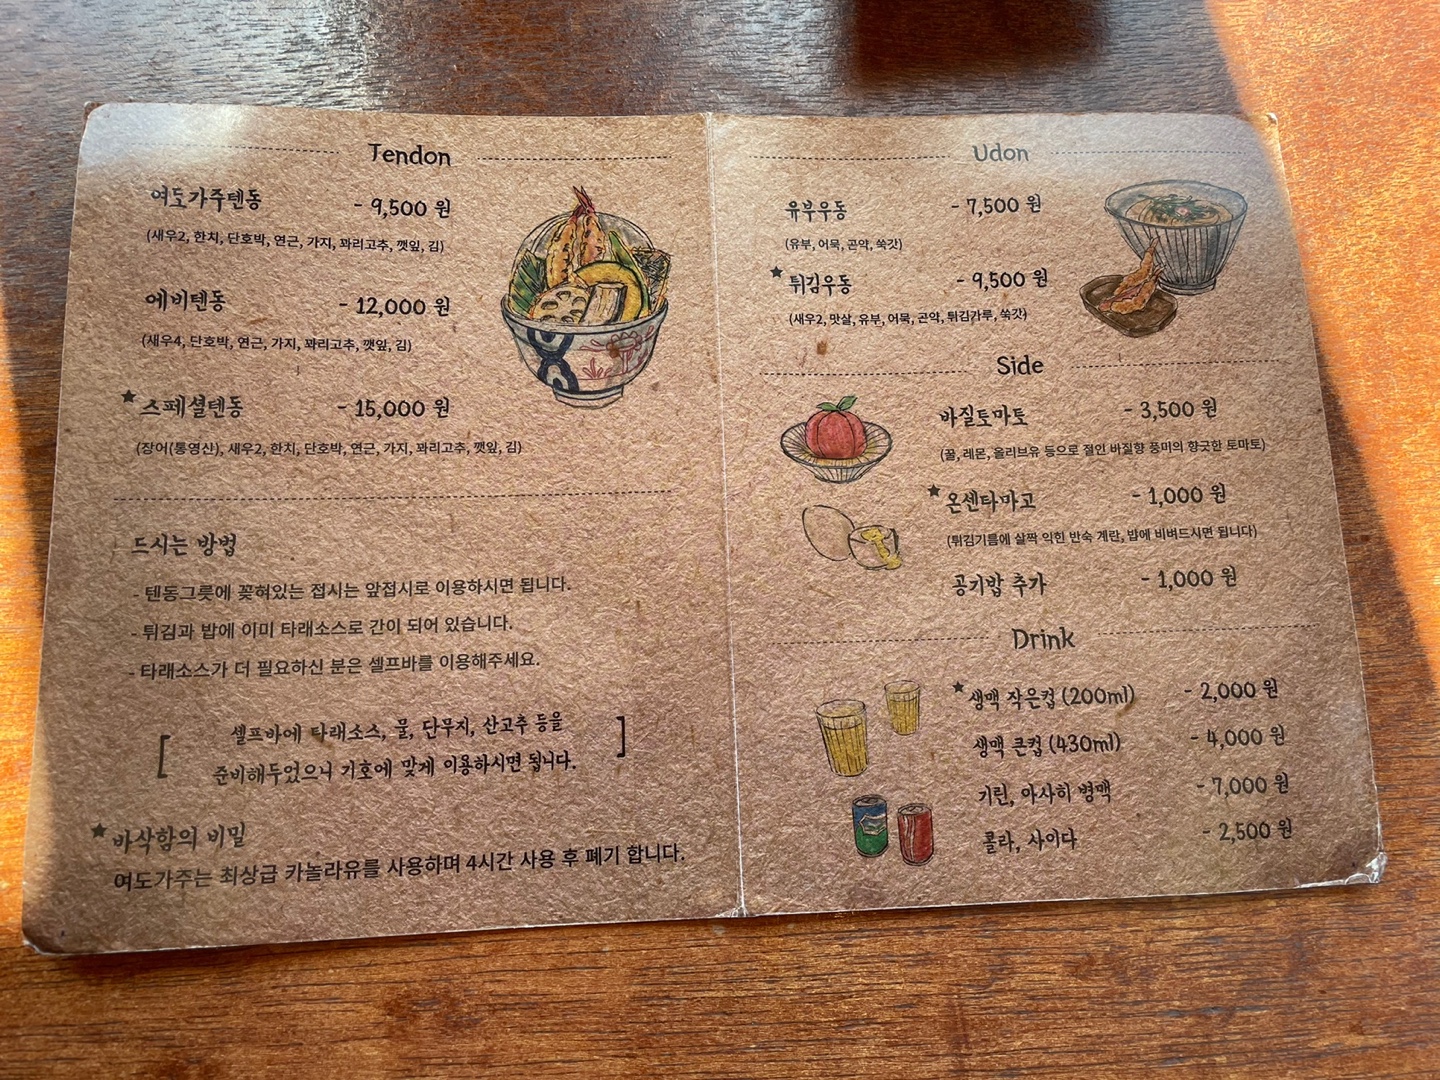 Tendon
여도가주텐동 - 9,500 원
(새우2, 한치, 단호박, 연근, 가지, 꽈리고추, 깻잎, 김)
에비텐동 - 12,000 원
(새우4, 단호박, 연근, 가지, 꽈리고추, 깻잎, 김)
★ 스페셜텐동 - 15,000 원
(장어(통영산), 새우2, 한치, 단호박, 연근, 가지, 꽈리고추, 깻잎, 김)
드시는 방법
- 텐동그릇에 꽂혀있는 접시는 앞접시로 이용하시면 됩니다.
- 튀김과 밥에 이미 타래소스로 간이 되어 있습니다.
- 타래소스가 더 필요하신 분은 셀프바를 이용해주세요.
[ 셀프바에 타래소스, 물, 단무지, 산고추 등을
준비해두었으니 기호에 맞게 이용하시면 됩니다. ]
★ 바삭함의 비밀
여도가주는 최상급 카놀라유를 사용하며 4시간 사용 후 폐기 합니다.
Udon
유부우동 - 7,500 원
(유부, 어묵, 곤약, 쑥갓)
★ 튀김우동 - 9,500 원
(새우2, 맛살, 유부, 어묵, 곤약, 튀김가루, 쑥갓)
Side
바질토마토 - 3,500 원
(꿀, 레몬, 올리브유 등으로 절인 바질향 풍미의 향긋한 토마토)
★ 온센타마고 - 1,000 원
(튀김기름에 살짝 익힌 반숙 계란, 밥에 비벼드시면 됩니다)
공기밥 추가 - 1,000 원
Drink
★ 생맥 작은컵 (200ml) - 2,000 원
생맥 큰컵 (430ml) - 4,000 원
기린, 아사히 병맥 - 7,000 원
콜라, 사이다 - 2,500 원